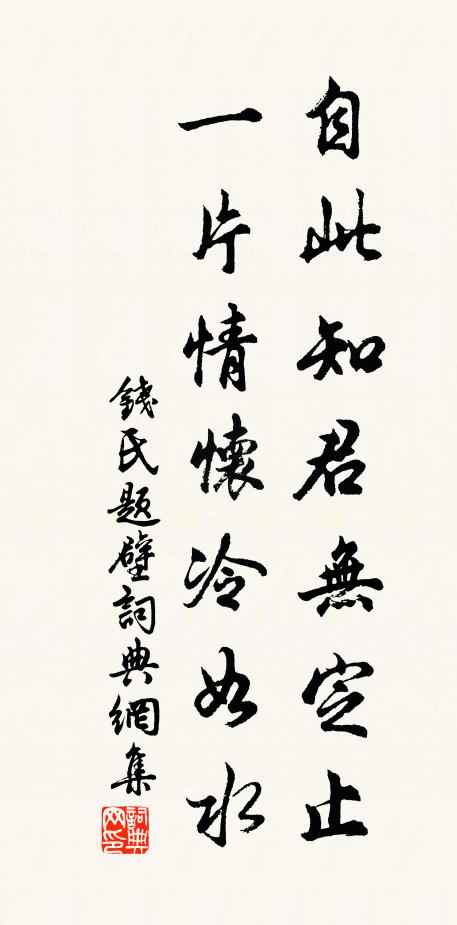 自此知君無定止
一片情懷冷如水
錢氏題壁詞典網集
詞典网印